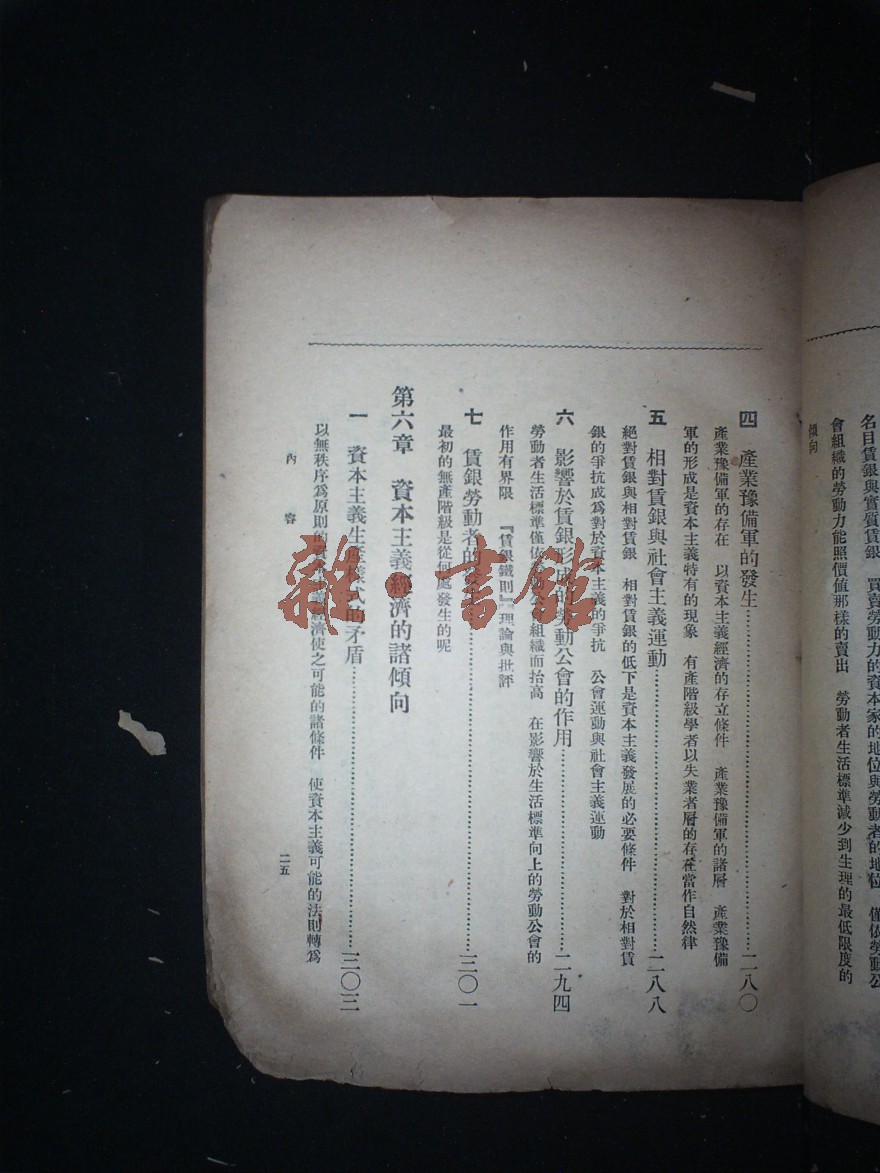 名目賃銀與實質賃銀　買賣勞動力的資本家的地位與勞動者的地位　僅依勞動公
會組織的勞動力能照價値那樣的賣出　勞動者生活標準減少到生理的最低限度的
傾向
四　產業豫備軍的發生……………………二八〇
產業豫備軍的存在　以資本主義經濟的存立條件　產業豫備軍的諸層　產業豫備
軍的形成是資本主義特有的現象　有產階級學者以失業者層的存在當作自然律
五　相對賃銀與社會主義運動……………………二八八
絕對賃銀與相對賃銀　相對賃銀的低下是資本主義發展的必要條件　對於相對賃
銀的爭抗成爲對於資本主義的爭抗　公會運動與社會主義運動
六　影響於賃銀形成的勞動公會的作用……………………二九四
勞動者生活標準僅依勞動公會組織而抬高　在影響於生活標準向上的勞動公會的
作用有界限　『賃銀鐵則』理論與批評
七　賃銀勞動者的……………………三〇一
最初的無產階級是從何處發生的呢
第六章　資本主義經濟的諸傾向
一　資本主義生產樣式的矛盾……………………三〇三
以無秩序爲原則的資本主義經濟使之可能的諸條件　使資本主義可能的法則轉爲
內容
二五
雜·書館